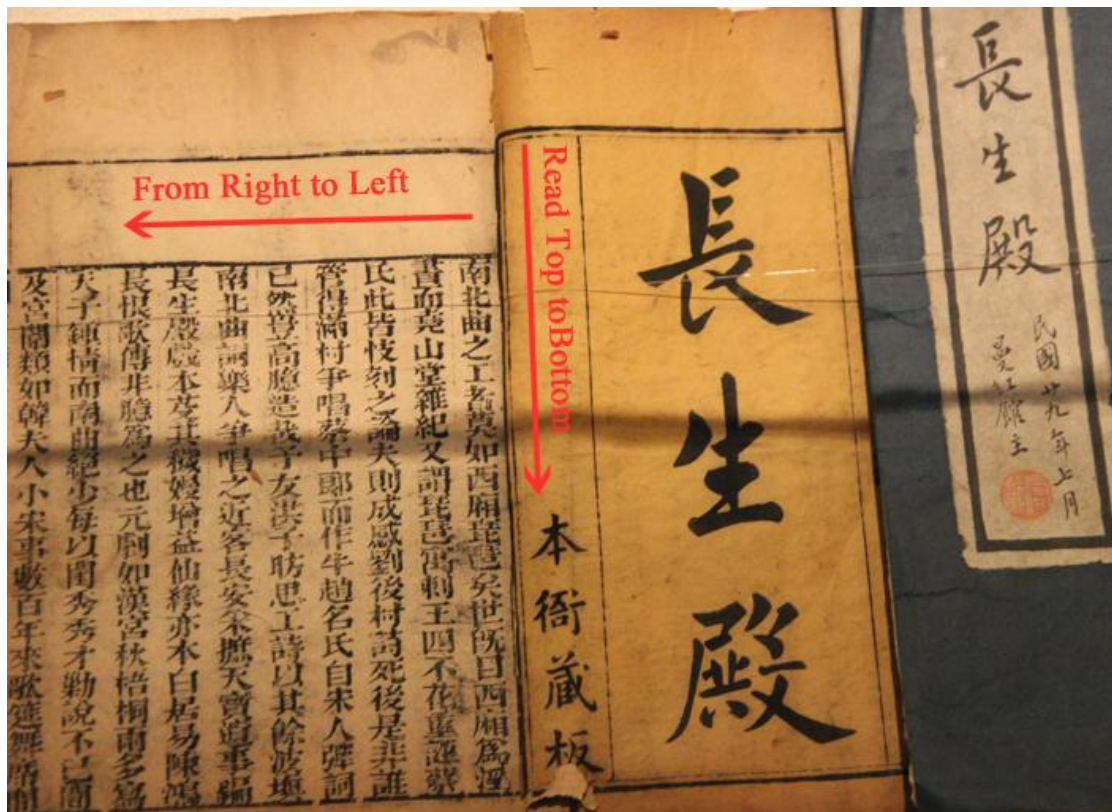 長生殿
民國廿九年七月
館主
長生殿
本衙藏板
Read Top toBottom
From Right to Left
南北曲之工者莫如西廂琵琶矣世旣曰西廂爲淫
書而堯山堂雜紀又謂琵琶寓刺王四不花重誣蔡
氏此皆忮刻之論夫則成感劉後村詩死後是非誰
管得滿村爭唱蔡中郎而作牛趙名氏自宋人彈詞
已然豈高臆造哉予友洪子昉思工詩以其餘波塡
南北曲詞樂人爭唱之近客長安采摭天寶遺事編
長生殿戲本芟其穢嫚增益仙緣亦本白居易陳鴻
長恨歌傳非臆爲之也元劇如漢宮秋梧桐雨多寫
天子鍾情而南曲絕少每以閨秀秀才勦說不已間
及宮闈類如韓夫人小宋事數百年來歌筵舞席間